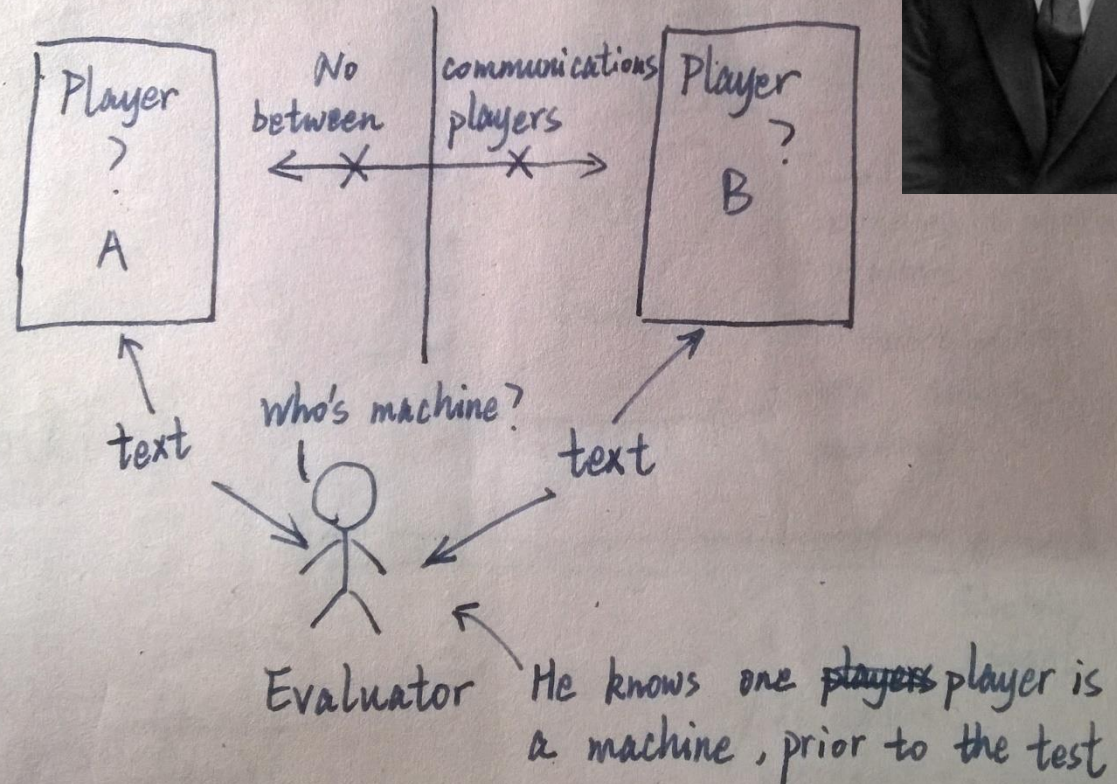 Player
?
A
No communications
between players
Player
?
B
text
who's machine?
text
Evaluator
He knows one players player is
a machine, prior to the test